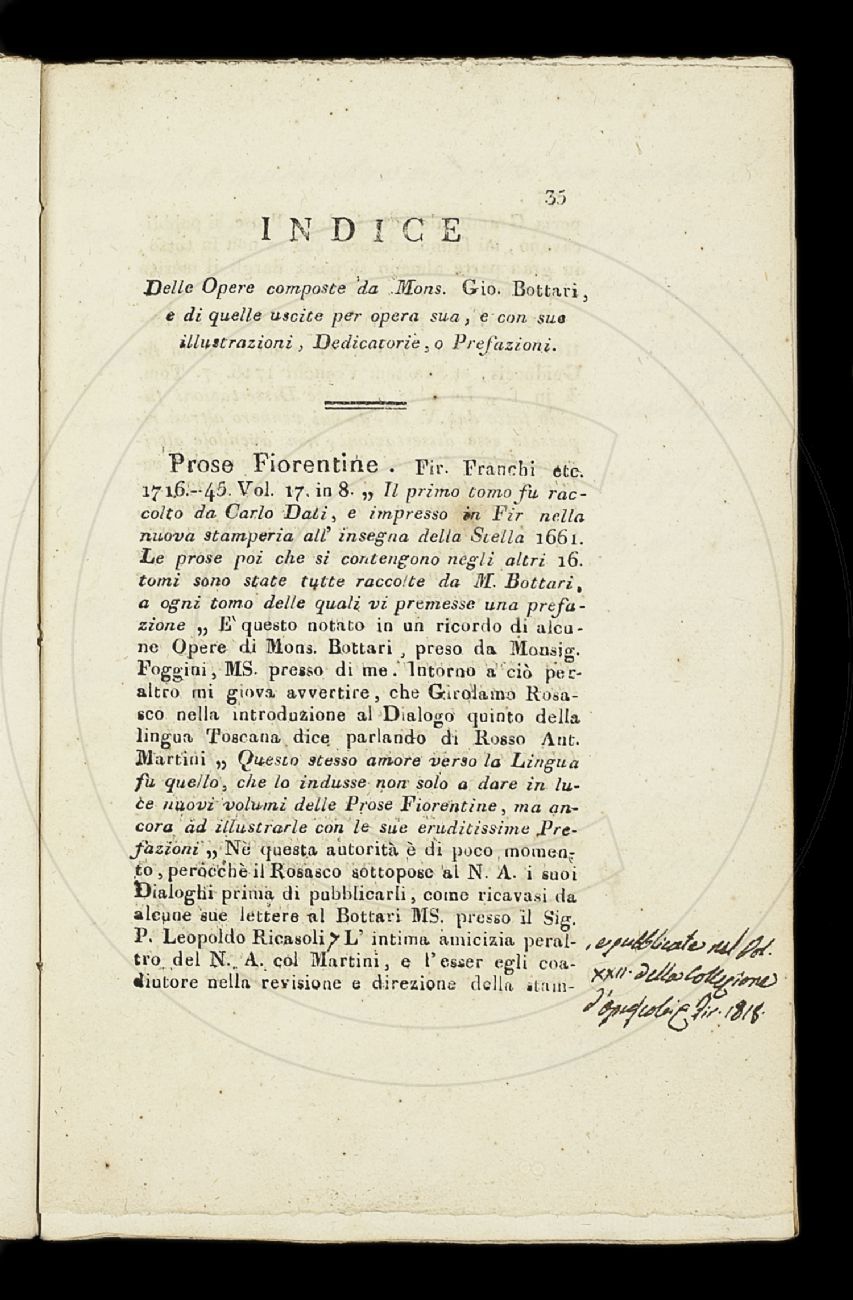 35
INDICE
Delle Opere composte da Mons. Gio. Bottari,
e di quelle uscite per opera sua, e con sue
illustrazioni, Dedicatorie, o Prefazioni.
Prose Fiorentine. Fir. Franchi etc.
1716.--45. Vol. 17. in 8. „ Il primo tomo fu rac-
colto da Carlo Dati, e impresso in Fir nella
nuova stamperia all' insegna della Stella 1661.
Le prose poi che si contengono negli altri 16.
tomi sono state tutte raccolte da M. Bottari,
a ogni tomo delle quali vi premesse una prefa-
zione „ E' questo notato in un ricordo di alcu-
ne Opere di Mons. Bottari, preso da Monsig.
Foggini, MS. presso di me. Intorno a ciò per-
altro mi giova avvertire, che Girolamo Rosa-
sco nella introduzione al Dialogo quinto della
lingua Toscana dice parlando di Rosso Ant.
Martini „ Questo stesso amore verso la Lingua
fu quello, che lo indusse non solo a dare in lu-
ce nuovi volumi delle Prose Fiorentine, ma an-
cora ad illustrarle con le sue eruditissime Pre-
fazioni „ Nè questa autorità è di poco momen-
to, perocchè il Rosasco sottopose al N. A. i suoi
Dialoghi prima di pubblicarli, come ricavasi da
alcune sue lettere al Bottari MS. presso il Sig.
P. Leopoldo Ricasoli L' intima amicizia peral-
tro del N. A. col Martini, e l'esser egli coa-
diutore nella revisione e direzione della stam-
, e pubblicate nel Vol.
XXII. della Collezione
d'Opuscoli Fir. 1818.